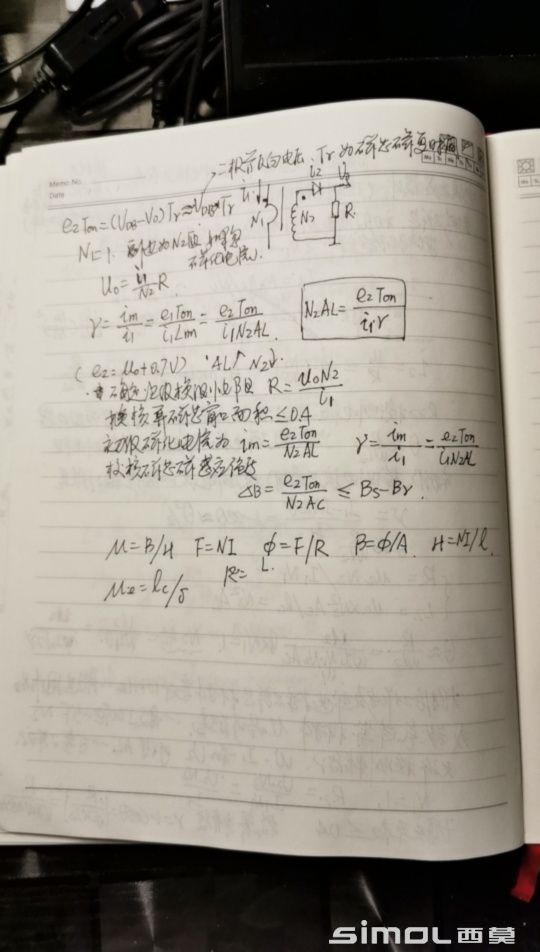 Memo No.
Date
二极管反向电压, Tr 为磁芯磁复时间
e₂Ton = (V_DB - V₀) Tr ≈ V_DB * Tr
i₁ N₁ N₂ i₂ U₀ R
N₁=1, 副边为N₂匝 如果忽
磁化电流.
U₀ = i₁/N₂ R
γ = im/i₁ = e₁Ton/i₁Lm = e₂Ton/i₁N₂AL
N₂AL = e₂Ton/i₁γ
(e₂ = U₀+0.7V) AL↑ N₂↓.
确定次级检测电阻 R = U₀N₂/i₁
窗口面积 ≤0.4
初级磁化电流为 im = e₂Ton/N₂AL γ = im/i₁ = e₂Ton/i₁N₂AL
校核磁芯磁感应
ΔB = e₂Ton/N₂Ac ≤ Bs-Br.
μ=B/H F=NI ϕ=F/R B=ϕ/A. H=NI/l.
μe=lc/δ R=
L.
SIMOL西莫